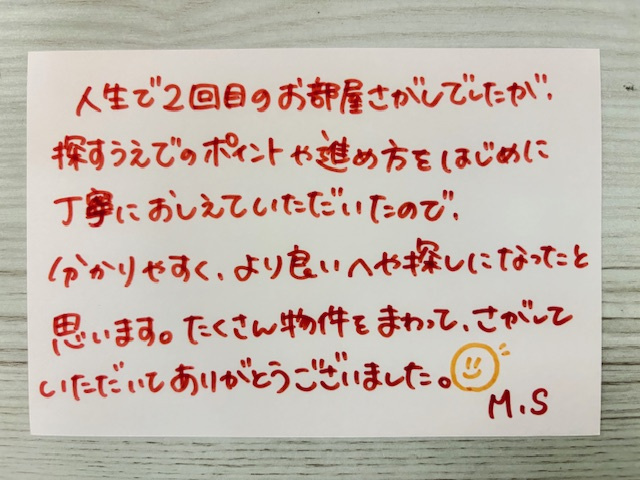 人生で2回目のお部屋さがしでしたが、
探すうえでのポイントや進め方をはじめに
丁寧におしえていただいたので、
分かりやすく、より良いへや探しになったと
思います。たくさん物件をまわって、さがして
いただいてありがとうございました。
M.S